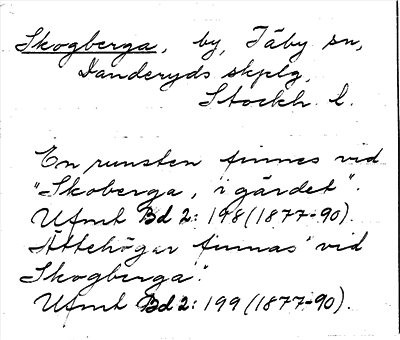 Skogberga, by, Täby sn,
Danderyds skplg,
Stockh. l.
En runsten finnes vid
"Skoberga, i gärdet".
Ufmt Bd 2: 198 (1877-90).
Ättehögar finnas "vid
Skogberga".
Ufmt Bd 2: 199 (1877-90).